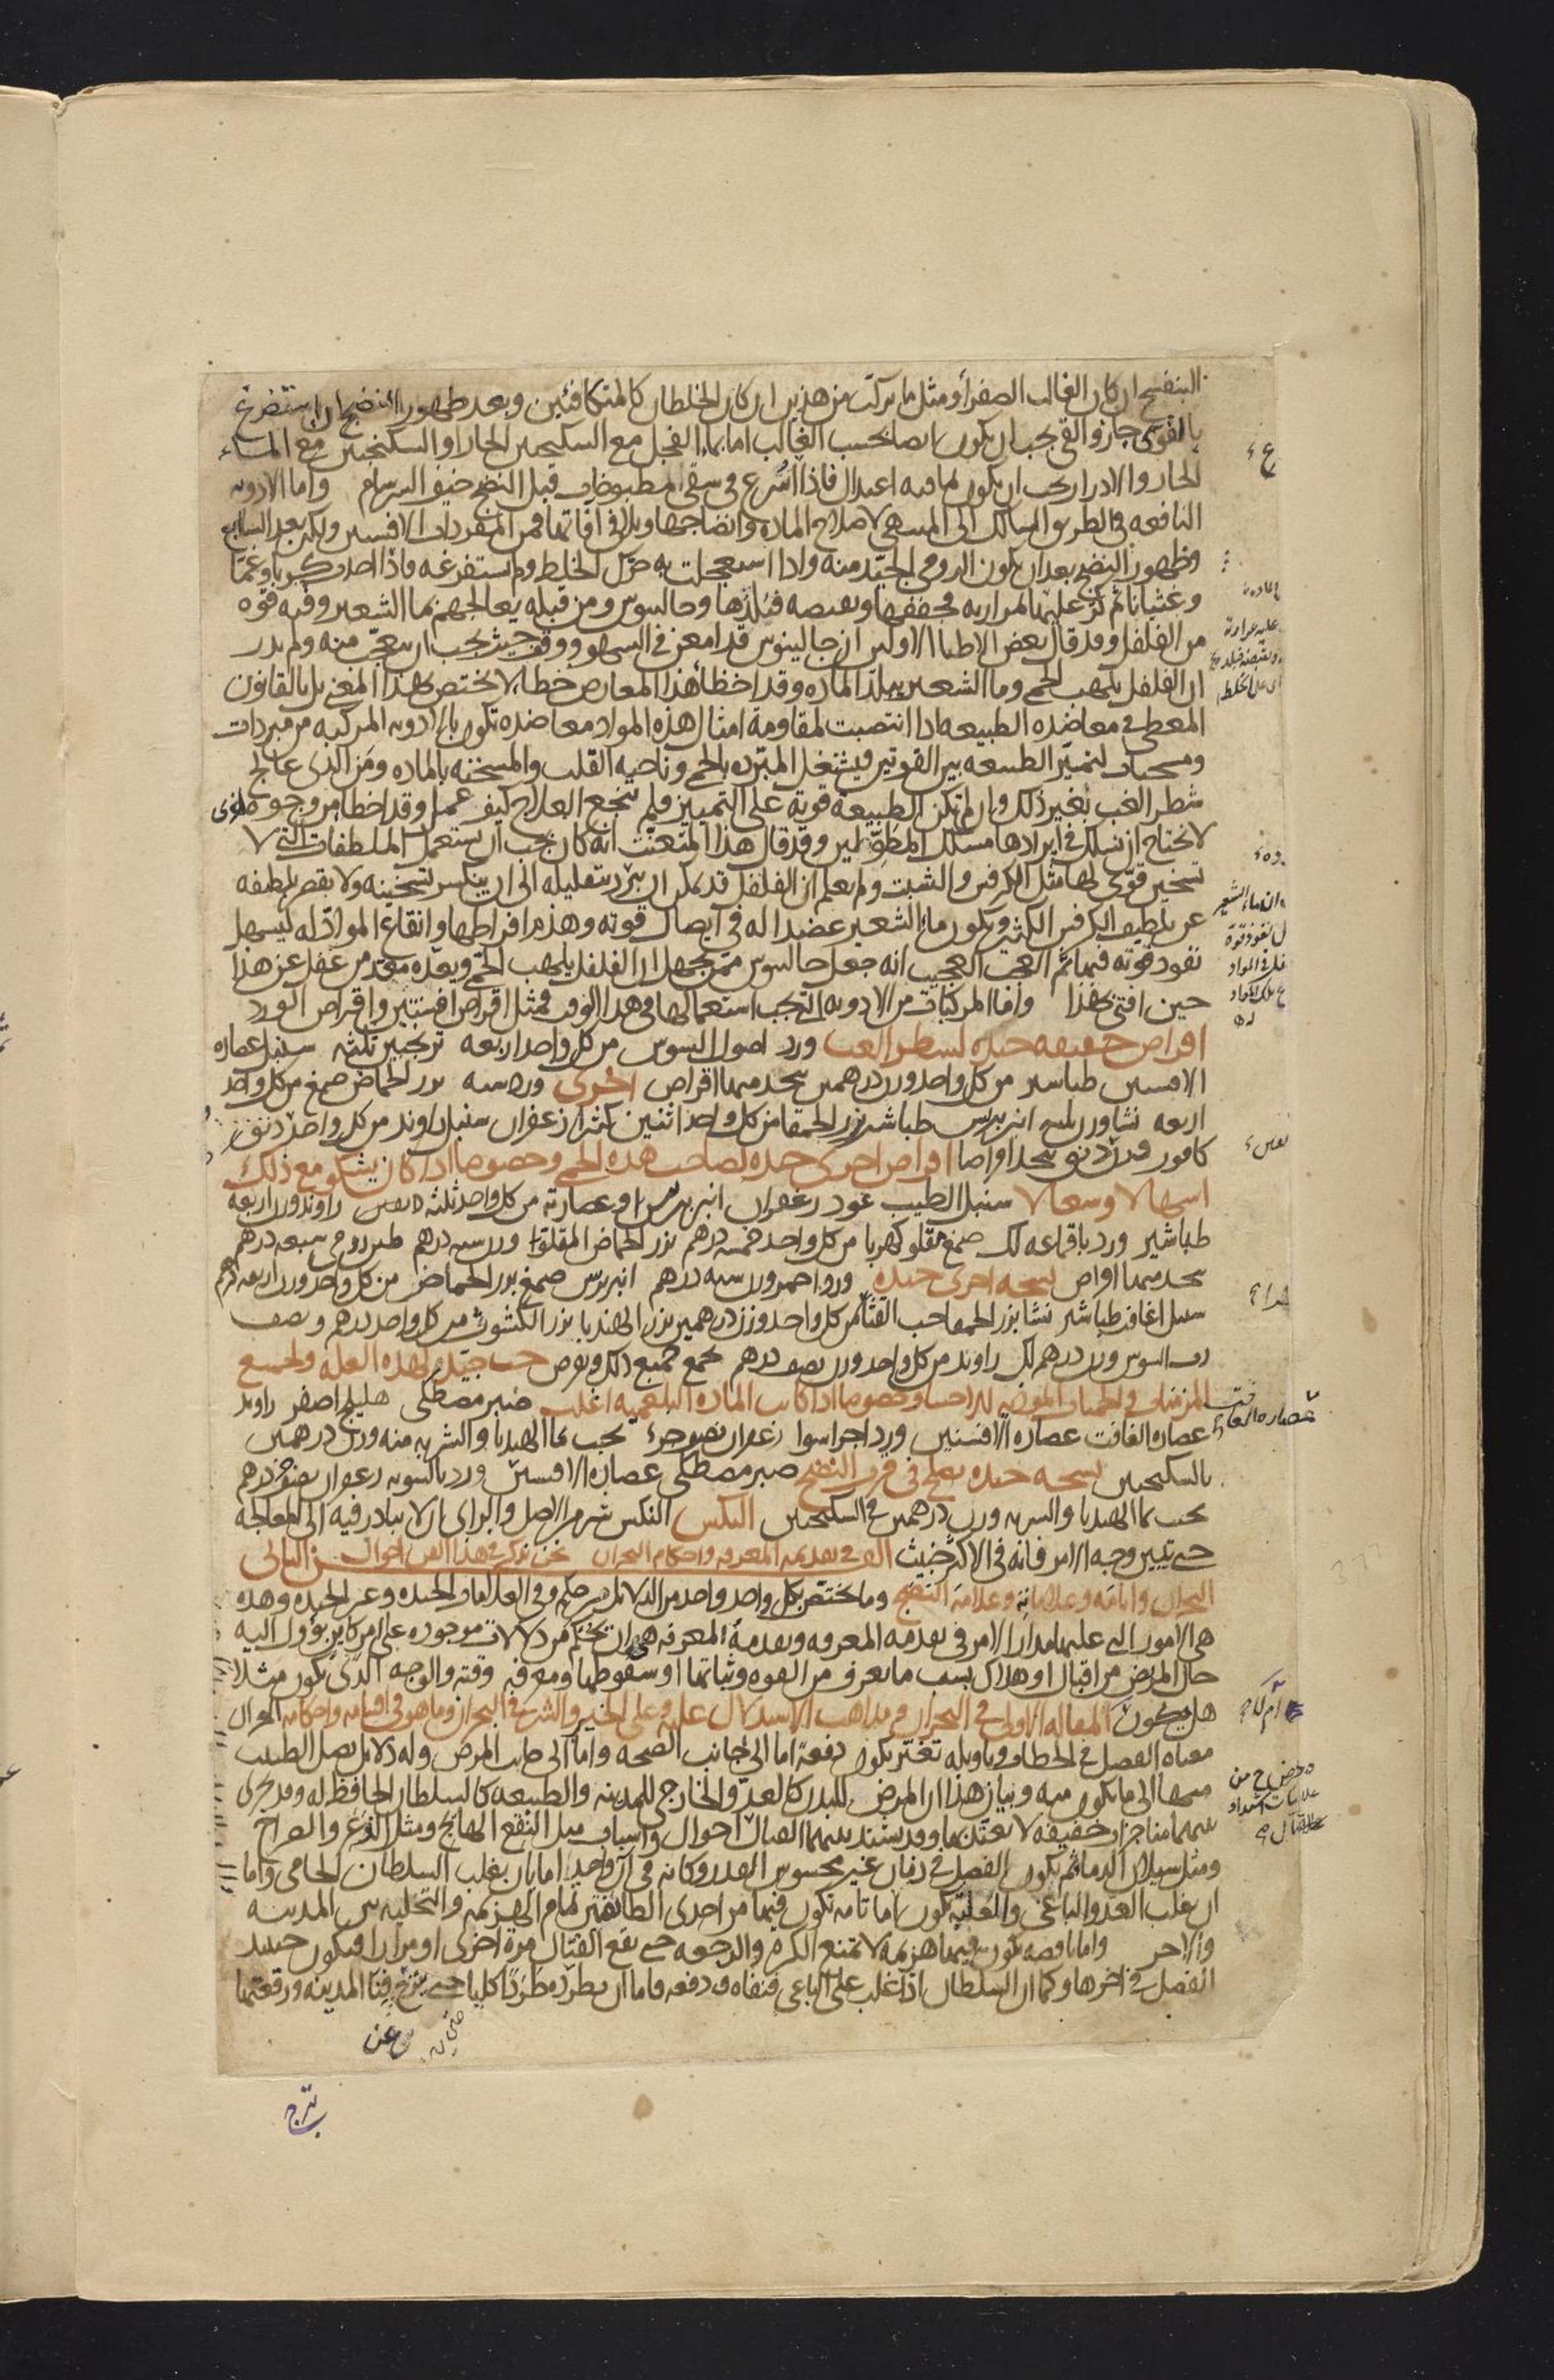 البنفسج ان كان الغالب الصفرا أو مثل ما يركب من هذين ان كان الخلطان كالمتكافئين وبعد ظهور النضج ان استفرغ
بالقوى جاز والقى يجب ان يكون ايضا بحسب الغالب اما بماء الفجل مع السكنجبين الحار او السكنجبين مع الماء
الحار والادرار يجب ان يكون بما فيه اعتدال فاذا اسرع فى سقى المطبوخات قبل النضج خيف السرسام واما الادويه
النافعه فى الطريق السالك الى المنتهى لاصلاح الماده وانضاجها وتلافى آفاتها فمن المفردات الافسنتين ولكن بعد السابع
وظهور النضج بعد ان يكون الرومى الجيد منه واذا استعجلت به حرك الخلط ولم يستفرغه فاذا احدث كربا وغما
وغثيانا ثم كر عليها لمراريه فجففها وبقبضه فبلدها وجالينوس ومن قبله يعالجهم بماء الشعير وفيه قوه
من الفلفل وقد قال بعض الاطباء الاولين ان جالينوس قد امعن فى السهو ووقع حيث يجب ان يتعجب منه ولم يدر
ان الفلفل يلهب الحمى وماء الشعير يبلد الماده وقد اخطأ هذا المعارض خطأ لا يختص بهذا المعنى بل بالقانون
المعطى فى معاضده الطبيعه اذا انتصبت لمقاومة امثال هذه المواد معاضده تكون بالادويه المركبه من مبردات
ومسخنات لتميز الطبيعه بين القوتين فيشتغل المبرده بالحمى وناحيه القلب والمسخنه بالماده ومن الذى عالج
شطر الغب بغير ذلك وان لم تكن الطبيعة قوية على التمييز فلم ينجع العلاج كيف عمل وقد اخطأ من وجوه اخرى
لا نحتاج ان نسلك فى ايرادها مسلك المطولين وقد قال هذا المتعنت انه كان يجب ان يستعمل الملطفات التى لا
تسخين قوى لها مثل الكرفس والشبت ولم يعلم ان الفلفل قد يمكن ان يبرد بتقليله الى ان ينكسر تسخينه ولا يقصر تلطيفه
عن تلطيف الكرفس الكثير ويكون ماء الشعير عضدا له فى ايصال قوته وهذم افراطها وانقاع المواد له ليسهل
نفوذ قوته فيها ثم العجب العجيب انه جعل جالينوس ممن يجهل ان الفلفل يلهب الحمى ويعده معه من غفل عن هذا
حين افتى بهذا واما المركبات من الادويه التى يجب استعمالها فى هذا الوقت فمثل اقراص افسنتين واقراص الورد
اقراص خفيفه جيده لشطر الغب ورد اصول السوس من كل واحد اربعه ترنجبين ثلثه سنبل عصاره
الافسنتين طباشير من كل واحد وزن درهمين يتخذ منها اقراص اخرى ورد سته بزر الحماض صمغ من كل واحد
اربعه نشا وزن ثلثه انبرباريس طباشير بزر الحمقا من كل واحد اثنين كثيرا زعفران سنبل راوند من كل واحد دنق
كافور قدر دنق يتخذ اقراصا اقراص اخرى جيده لصاحب هذه الحمى وخصوصا اذا كان يشكو مع ذلك
اسهالا وسعالا سنبل الطيب عود زعفران انبرباريس او عصارته من كل واحد ثلثه دراهم راوند وزن اربعه
طباشير ورد باقماعه لك صمغ مقلو كهربا من كل واحد خمسه درهم بزر الحماض المقلو وزن سته درهم طين رومى سبعه درهم
يتخذ منها اقراص نسخه اخرى جيده ورد احمر وزن سته درهم انبرباريس صمغ بزر الحماض من كل واحد وزن اربعه درهم
سنبل اغافت طباشير نشا بزر الحمقا حب القثاء من كل واحد وزن درهمين بزر الهندبا بزر الكشوث من كل واحد درهم ونصف
رب السوس وزن درهم لك راوند من كل واحد وزن نصف درهم يجمع جميع ذلك ويقرص حب جيد لهذه العله ولجميع
المزمنات فى الحميات المؤذيه للاحشا وخصوصا اذا كانت الماده البلغميه اغلب صبر مصطكى هليلج اصفر راوند
عصاره الغافت عصاره الافسنتين ورد اجزا سوا زعفران نصف جزء يحبب بماء الهندبا والشربه منه وزن درهمين
بالسكنجبين نسخه جيده تصلح فى قرب النضج صبر مصطكى عصارة الافسنتين ورد بالسويه زعفران نصف درهم
يحبب بماء الهندبا والشربه وزن درهمين فى السكنجبين النكس النكس شر من الاصل والراى ان لا يبادر فيه الى المعالجه
حتى يتبين وجه الامر فانه فى الاكثر خبيث الفن فى تقدمه المعرفه واحكام البحران نحن نذكر فى هذا الفن احوال
البحران وايامه وعلاماته وعلامة النضج وما يختص بكل واحد واحد من الدلائل من حكم وفى العلامات الجيده وغير الجيده وهذه
هى الامور التى عليها مدار الامر فى تقدمه المعرفه وتقدمة المعرفه هى ان تحكم من دلالات موجوده على امر كاين يؤول اليه
حال المريض من اقبال او هلاك بسبب ما يعرف من القوه وثباتها او سقوطها ومعرفه وقته والوجه الذى يكون مثلا
هل يكون المقاله الاولى فى البحران وهو مذاهب الاستدلال عليه وعلى الخير والشر فى البحران وما هو فى اقسامه واحكامه البحران
معناه الفصل فى الخطاب وتاويله تغير يكون دفعة اما الى جانب الصحه واما الى جانب المرض وله دلائل يصل الطبيب
منها الى ما يكون منه وبيان هذا ان المرض للبدن كالعدو الخارجى للمدينه والطبيعه كالسلطان الحافظ له وقد يجرى
بينهما مناجزات خفيفه لا يعتد بها وقد يشتد بينهما القتال احوال واسباب مثل النقع الهائج ومثل الذعر والصراخ
ومثل سيلان الدما ثم يكون الفصل فى زمان غير محسوس القدر وكانه فى آن واحد اما بان يغلب السلطان الحامى واما
ان يغلب العدو الباغى والغلبة تكون اما تامه تكون فيها من احدى الطائفتين تمام الهزيمه والتخليه بين المدينه
والاخر واما ناقصه تكون فيها هزيمة لا تمنع الكر والرجعه حتى يقع القتال مرة اخرى او مرارا فيكون حينئذ
الفصل فى اخرها وكما ان السلطان اذا غلب على الباغى فنفاه ودفعه فاما ان يطرده طردا كليا حتى يزيح فناء المدينه ورقعتها